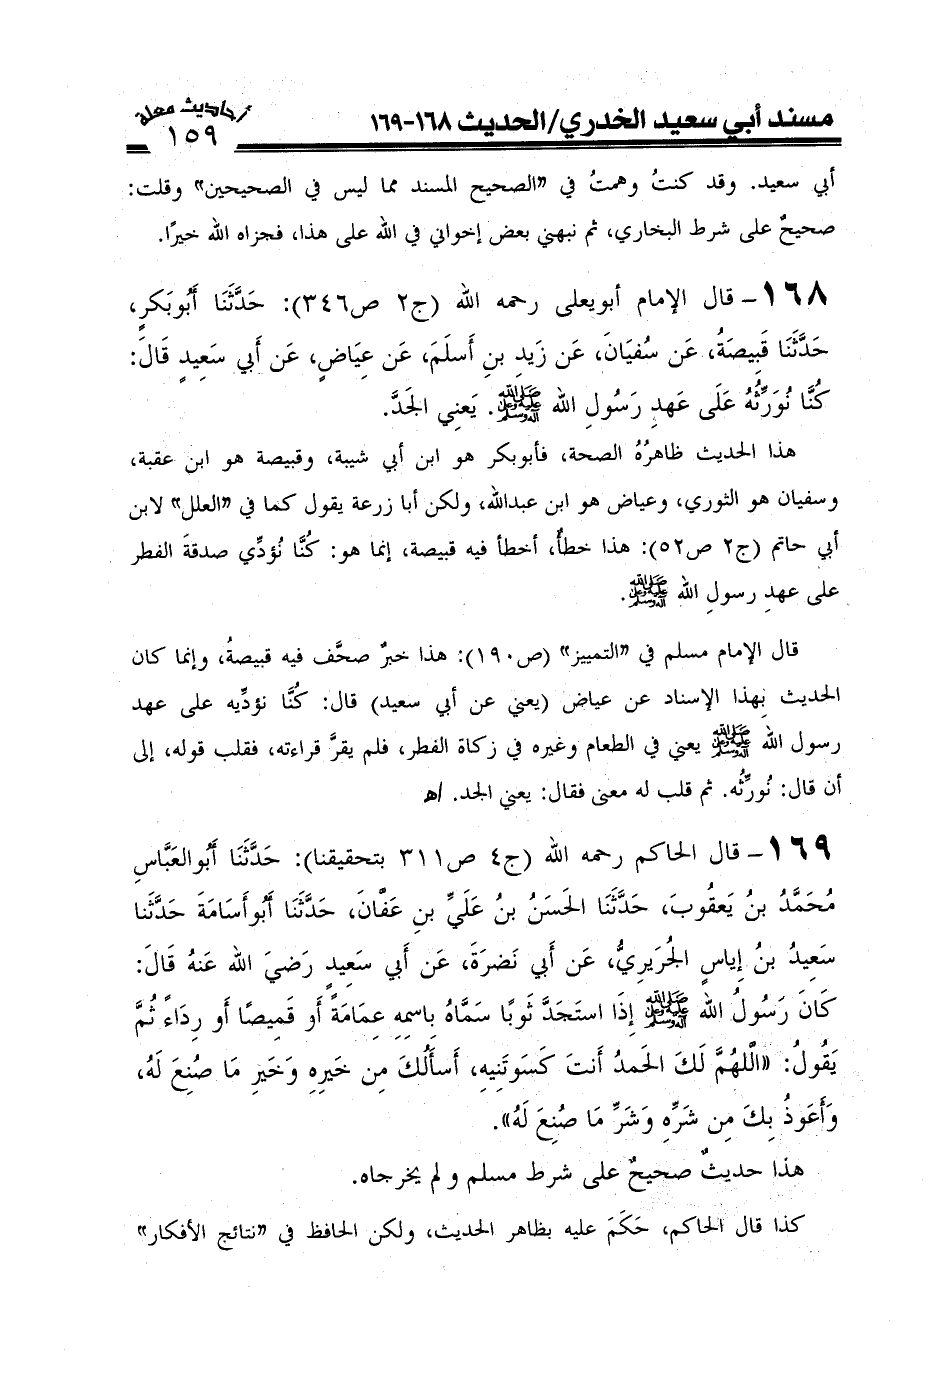 مسند أبي سعيد الخدري/الحديث ١٦٨-١٦٩
أحاديث معلة
١٥٩
أبي سعيد. وقد كنتُ وهمتُ في «الصحيح المسند مما ليس في الصحيحين» وقلت:
صحيحٌ على شرط البخاري، ثم نبهني بعض إخواني في الله على هذا، فجزاه الله خيرًا.
١٦٨ – قال الإمام أبويعلى رحمه الله (ج٢ ص٣٤٦): حَدَّثَنَا أَبُوبَكرٍ،
حَدَّثَنَا قَبِيصَةُ، عَن سُفيَانَ، عَن زَيدِ بنِ أَسلَمَ، عَن عِيَاضٍ، عَن أَبي سَعِيدٍ قَالَ:
كُنَّا نُوَرِّثُهُ عَلَى عَهدِ رَسُولِ الله ﷺ. يَعنِي الجَدَّ.
هذا الحديث ظاهرُهُ الصحة، فأبوبكر هو ابن أبي شيبة، وقبيصة هو ابن عقبة،
وسفيان هو الثوري، وعياض هو ابن عبدالله، ولكن أبا زرعة يقول كما في «العلل» لابن
أبي حاتم (ج٢ ص٥٢): هذا خطأٌ، أخطأ فيه قبيصة، إنما هو: كُنَّا نُؤدِّي صدقةَ الفطر
على عهدِ رسولِ الله ﷺ.
قال الإمام مسلم في «التمييز» (ص١٩٠): هذا خبرٌ صحَّف فيه قبيصةُ، وإنما كان
الحديث بِهذا الإسناد عن عياض (يعني عن أبي سعيد) قال: كُنَّا نؤدِّيه على عهد
رسول الله ﷺ يعني في الطعام وغيره في زكاة الفطر، فلم يقرَّ قراءته، فقلب قوله، إلى
أن قال: نُورِّثُه. ثم قلب له معنى فقال: يعني الجد. اﻫ
١٦٩ – قال الحاكم رحمه الله (ج٤ ص٣١١ بتحقيقنا): حَدَّثَنَا أَبُوالعَبَّاسِ
مُحَمَّدُ بنُ يَعقُوبَ، حَدَّثَنَا الحَسَنُ بنُ عَلَيِّ بنِ عَفَّانَ، حَدَّثَنَا أَبُوأُسَامَةَ حَدَّثَنا
سَعِيدُ بنُ إِياسٍ الجُرَيرِيُّ، عَن أَبي نَضرَةَ، عَن أَبي سَعِيدٍ رَضيَ الله عَنهُ قَالَ:
كَانَ رَسُولُ الله ﷺ إِذَا استَجَدَّ ثَوبًا سَمَّاهُ بِاسمِهِ عِمَامَةً أَو قَمِيصًا أَو رِدَاءً ثُمَّ
يَقُولُ: «اللَّهُمَّ لَكَ الحَمدُ أَنتَ كَسَوتَنِيهِ، أَسأَلُكَ مِن خَيرِهِ وَخَيرِ مَا صُنِعَ لَهُ،
وَأَعَوذُ بِكَ مِن شَرِّهِ وَشَرِّ مَا صُنِعَ لَهُ».
هذا حديثٌ صحيحٌ على شرط مسلم و لم يخرجاه.
كذا قال الحاكم، حَكَمَ عليه بظاهر الحديث، ولكن الحافظ في «نتائج الأفكار»